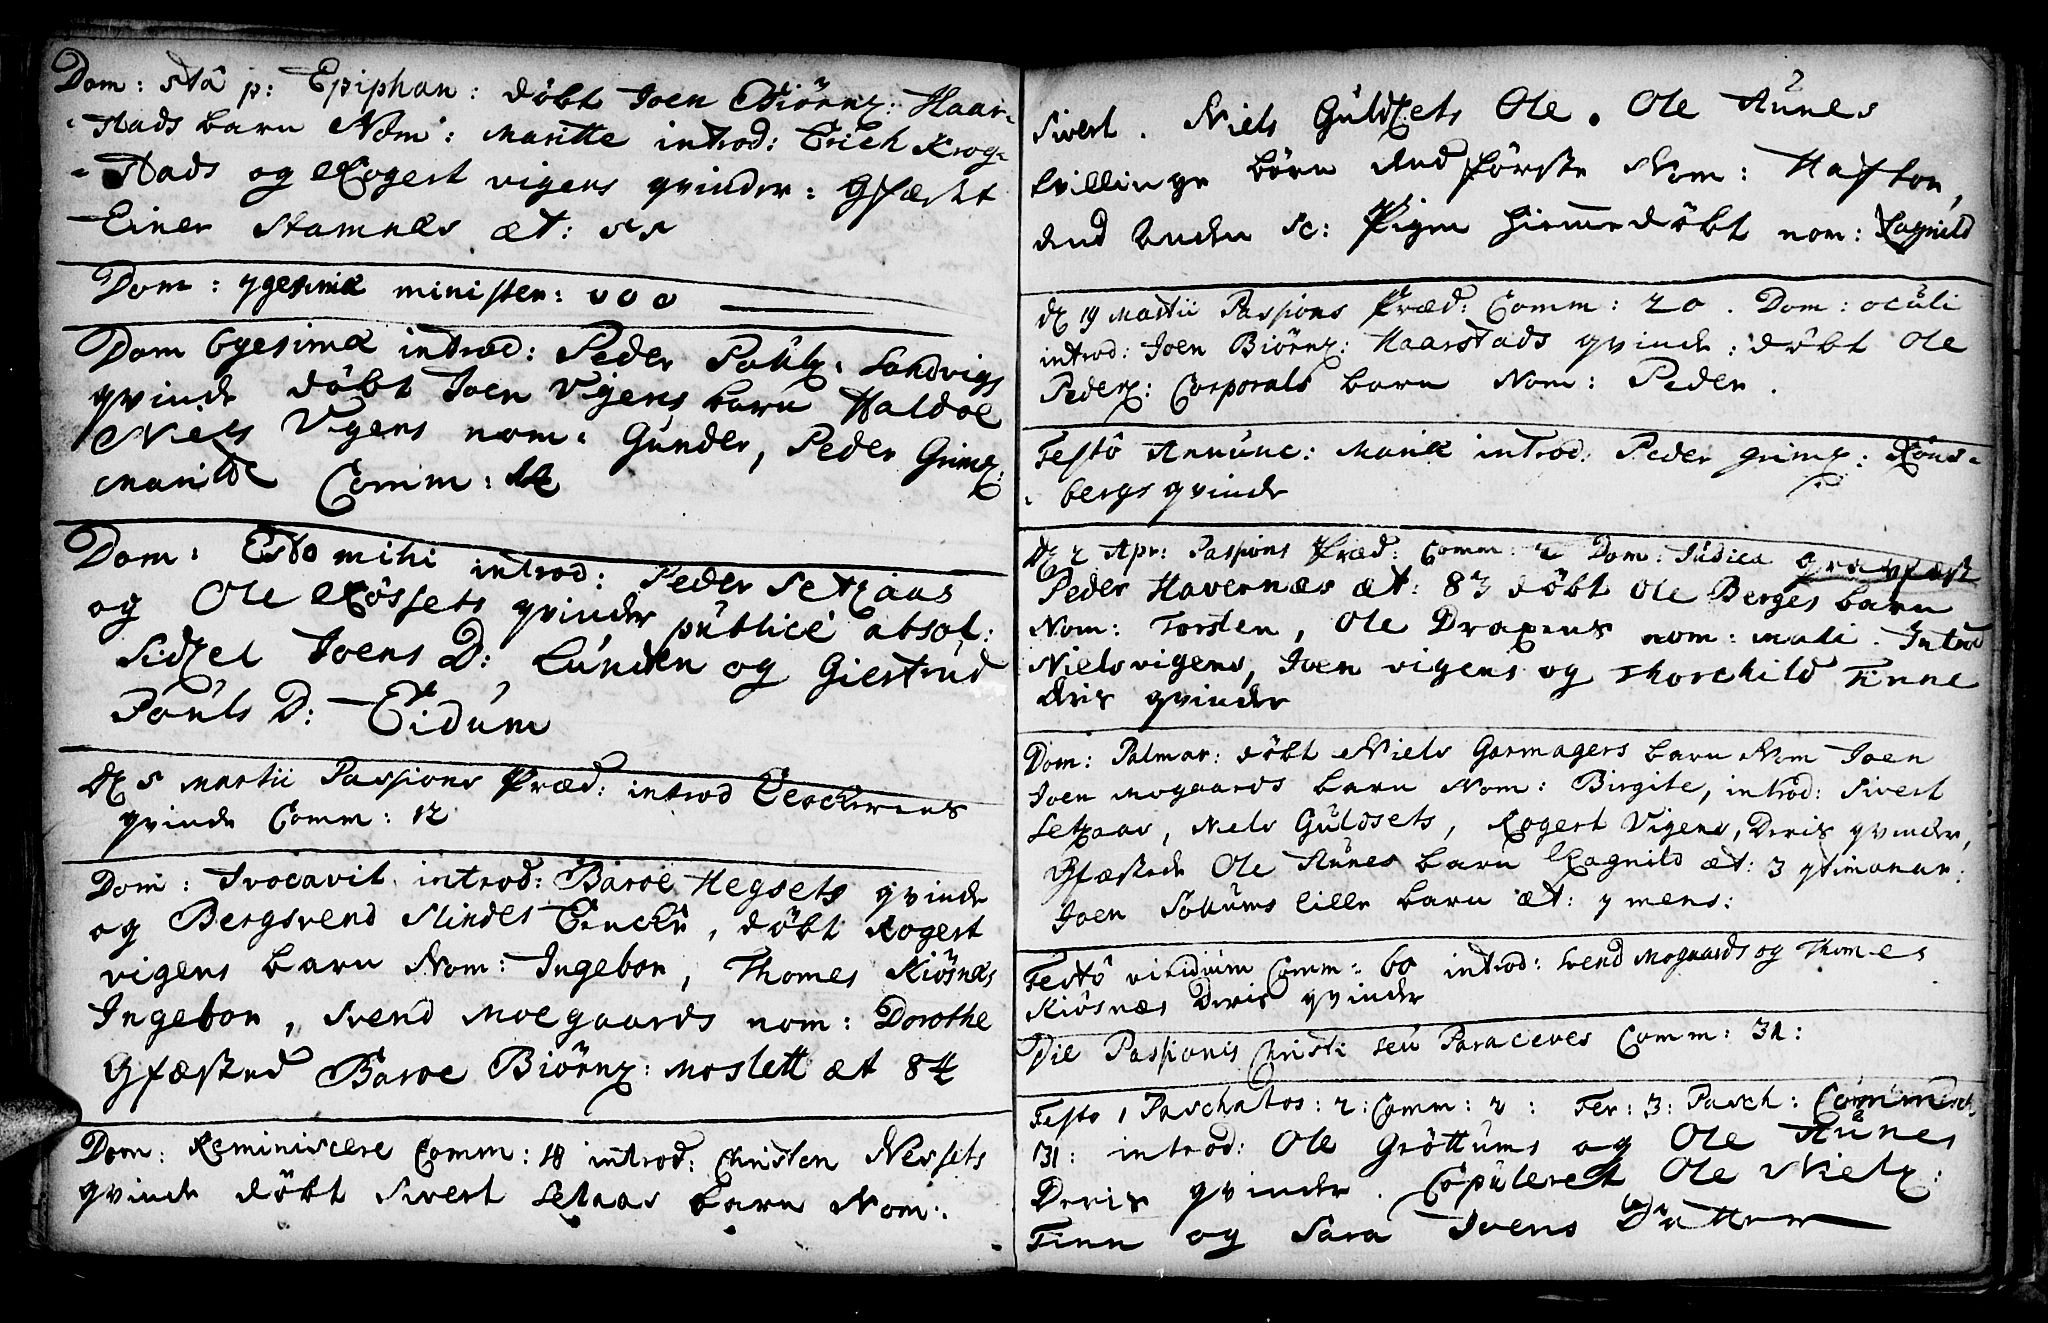 Dom: 5ta p: Epiphan: døbt Joen Biörnz: Haar-
-stads barn Nom: Maritte introd: Erich Krog-
-stads og Rogert vigens qvinder: Gfæstet
Einer Stamnes æt: 55
Dom: 7gesimæ minister: 000
Dom 6gesimæ introd: Peder Påulz: Sandvigs
qvinde døbt Joen Vigens barn Haldoe
Niels Vigens nom: Gunder, Peder Grimz:
Marille Comm: 14
Dom: Esto mihi introd: Peder Setzaas
og Ole Røssets qvinder publicè absol:
Sidzel Joens D: Lunden og Giertrud
Pouls D: Eidum
Dz 5 Martii Passions Præd: introd
qvinde Comm: 12
Dom: Invocavit introd: Baroe Hegsets qvinde
og Bergsvend Slindes Encke, døbt Rogert
vigens barn Nom: Ingebor, Thomes Kiösnæs
Ingebor, Svend Moegaards nom: Dorothe
Gfæsted Baroe Biörnz: Moslett æt 84
Dom: Reminiscere Comm: 18 introd: Christen Nessets
qvinde døbt Sivert Setaas barn Nom:
Sivert. Niels Guldzets Ole. Ole Aunes
tvillinge börn dend förste Nom: Hafton,
dend anden sc: Pigen hiemmedøbt nom: Ragnild
dz 19 Martii Passions Præd: Comm: 20. Dom: oculi
introd: Joen Biörnz: Haarstads qvinde: døbt Ole
Pederz: Corporals barn Nom: Peder.
Festo Annunc: Mariæ introd: Peder grimz: Röns-
-bergs qvinde
Dz 2 Apr: Passions Præd: Comm: 2 Dom: Judica gravfæst
Peder Havernæs æt: 83 döbt Ole Berges barn
Nom: Torsten, Ole Draxens nom: Mali. Introd
Niels vigens, Joen vigens og Thorchild Finne
deris qvinder
Dom: Palmar: döbt Niels Garmagers barn Nom Joen
Joen Mogaards barn Nom: Birgite, introd: Sivert
Setzaas, Niels Guldsets, Rogert Vigens, Deris qvinder,
Gfæstede Ole Aunes barn Ragnild æt: 3
Joen Sollums lille barn æt: 7 mens:
Festo viridium Comm: 60 introd: Svend Mogaards og Thomes
Kiösnæs Deris qvinder
Die Passionis Christi seu Parasceves Comm: 31:
Festo 1 Paschatos: 2: Comm: 2: Fer: 3: Pasch:
31: introd: Ole Gröttums og Ole Aunes
Deris qvinder. Copuleret Ole Nielz:
Finn og Sara Joens Datter